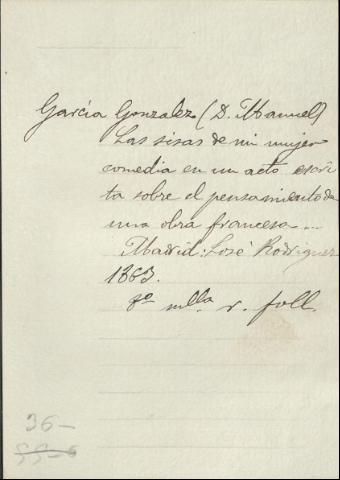 García Gonzalez (D. Manuel)
Las sisas de mi mujer
comedia en un acto escri
ta sobre el pensamiento de
una obra francesa...
Madrid: José Rodriguez
1863.
8º mlla. r. foll.
36-
55-6